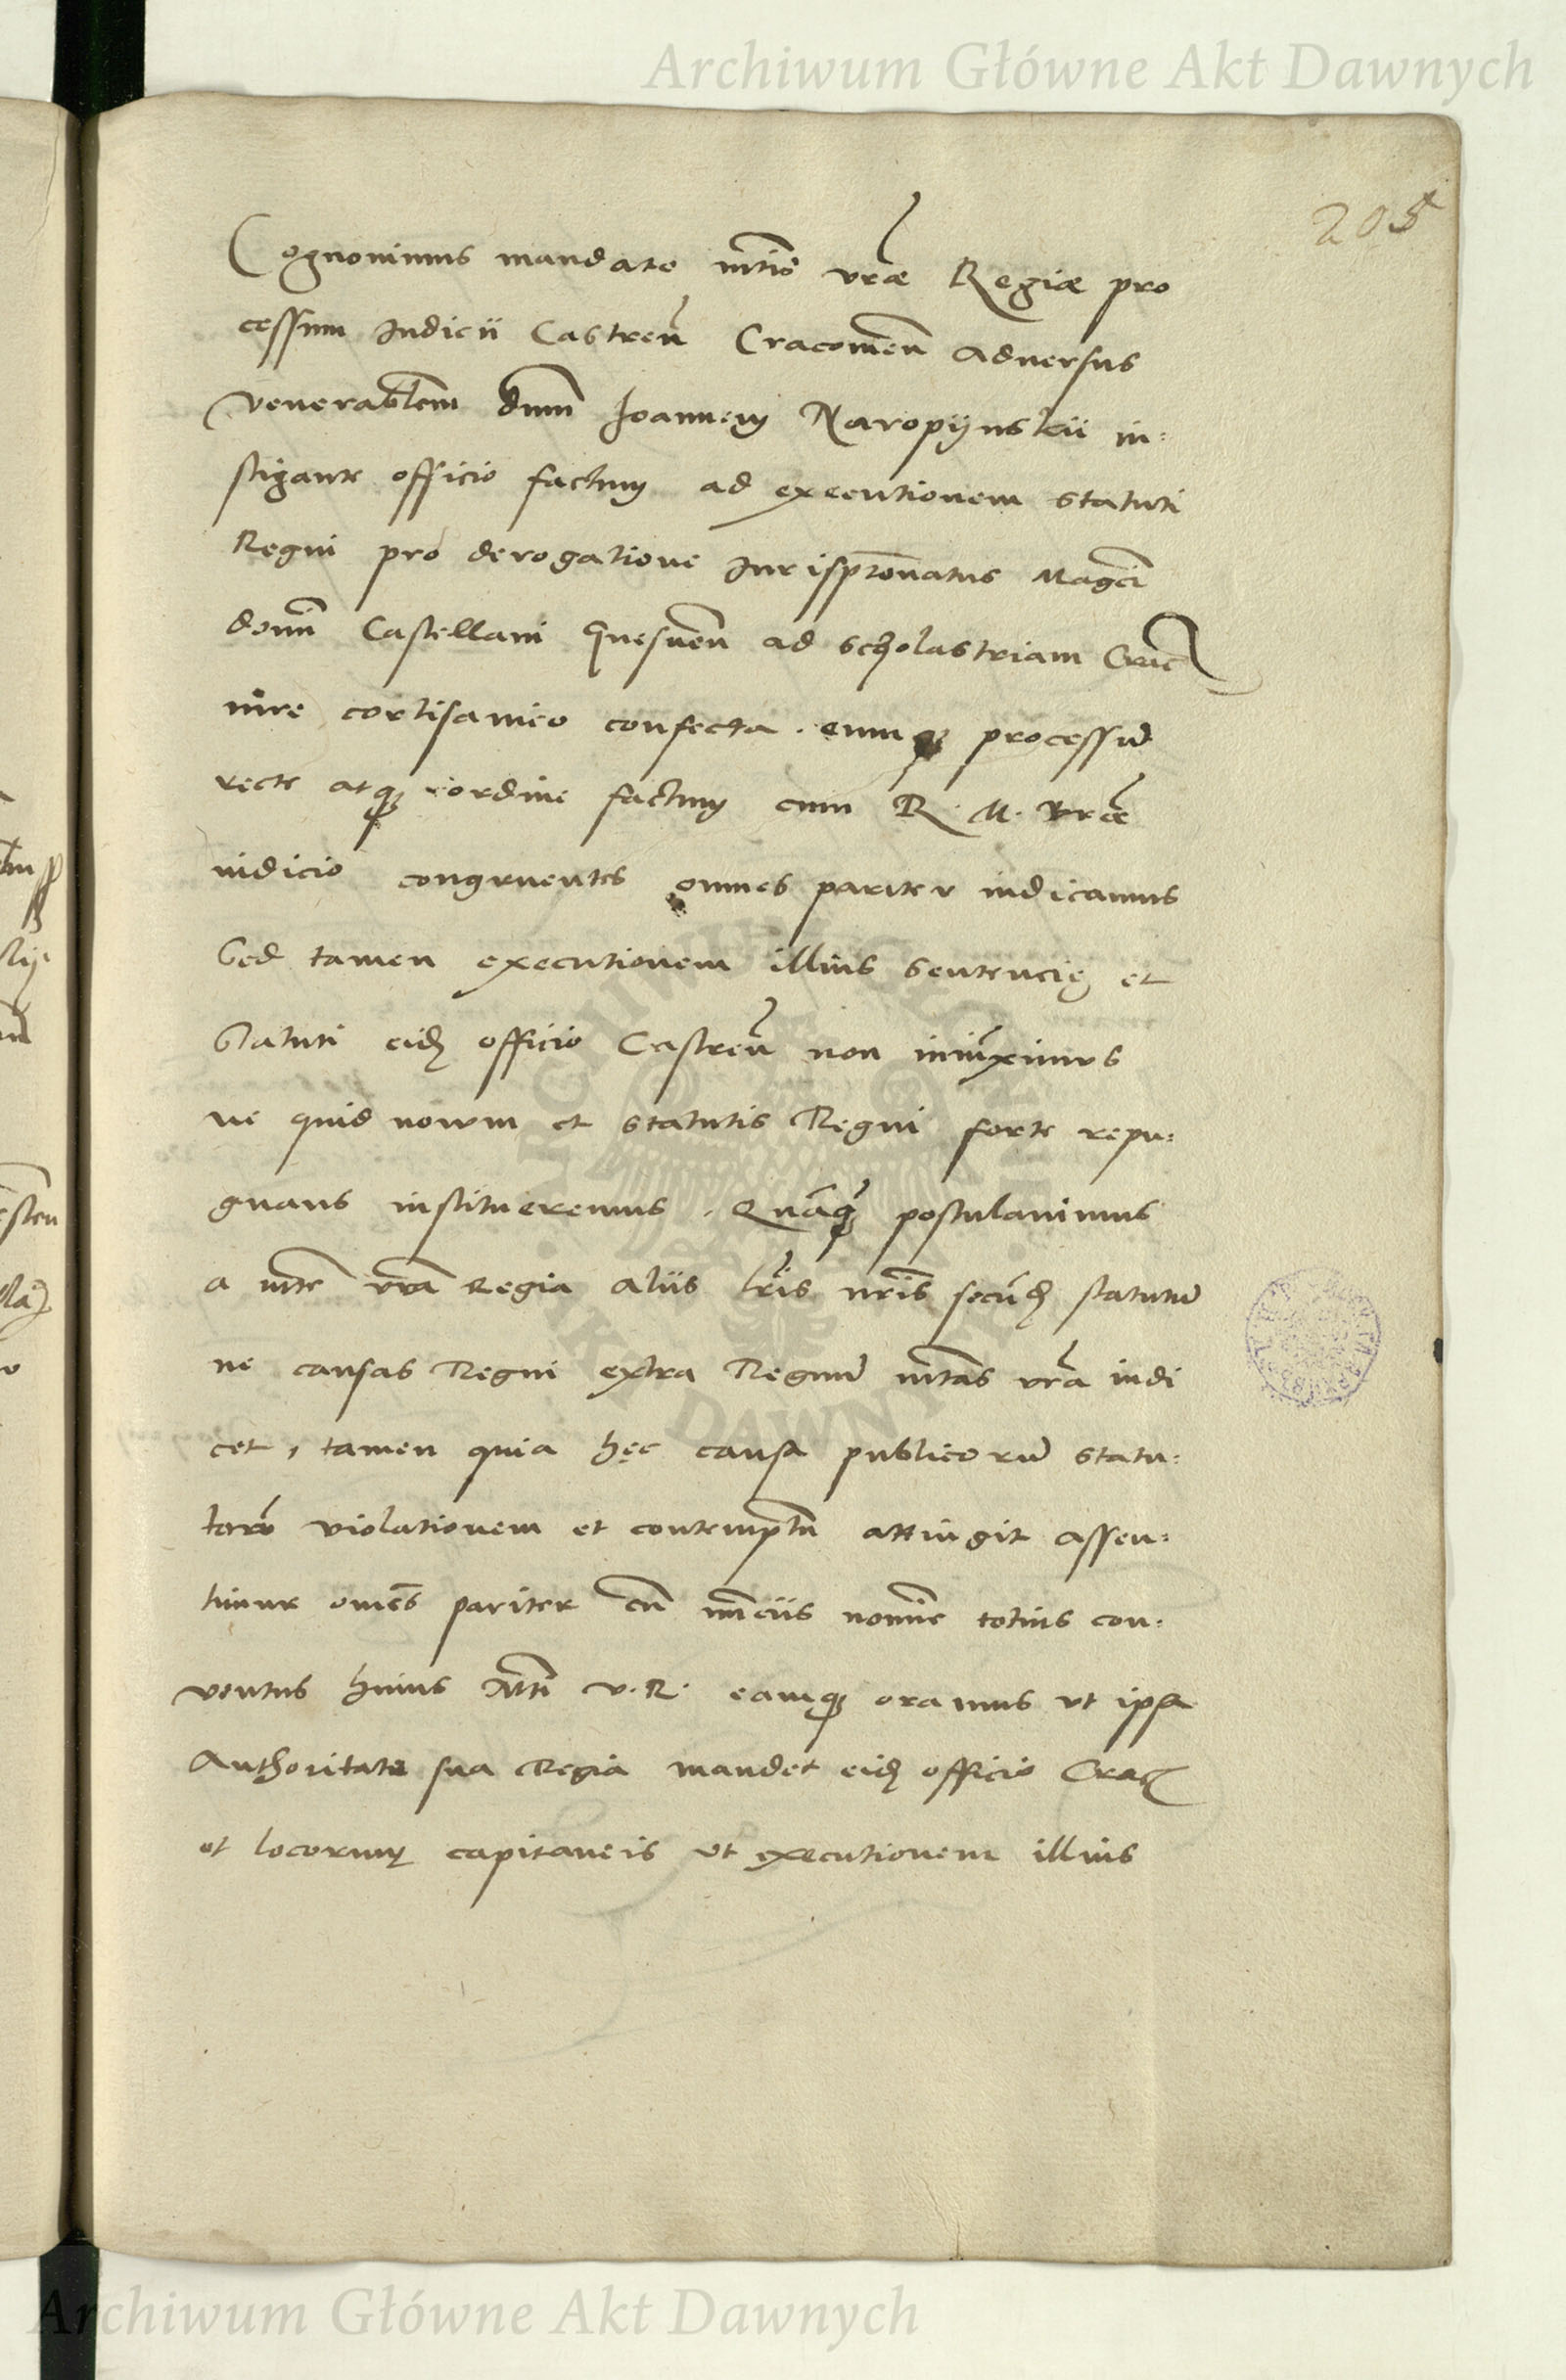 Archiwum Główne Akt Dawnych
205
Cognovimus mandato mtis vrae Regiae pro
cessum Iudicii Castren Cracovien adversus
venerablem dnum Joannem Naropijnskii in:
stigante officio factum ad executionem statuti
Regni pro derogatione Iurispronatus Magci
domi Castellani Gnesnen ad scholastriam Crac
iure cortisanico confecta . eumq processu
recte atq ordine factum cum R. M. vrae
iudicio congruentes omnes pariter iudicamus
Sed tamen executionem illius sentencię et
Statuti eid officio Castren non iniuximus
ne quid novum et statutis Regni forte repu:
gnans institueremus . Quaq postulavimus
a mte vra Regia aliis lris nris secud statutu
ne causas Regni extra Regnu mtas vra iudi
cet, tamen quia hęc causa publicoru statu:
toru violationem et contemptu attingit assen:
timur omes pariter cu nuciis nomie totius con:
ventus huius Mti v. R. eamq oramus ut ipsa
Authoritate sua Regia mandet eid officio Crac
et locorum capitaneis ut executionem illius
Archiwum Główne Akt Dawnych